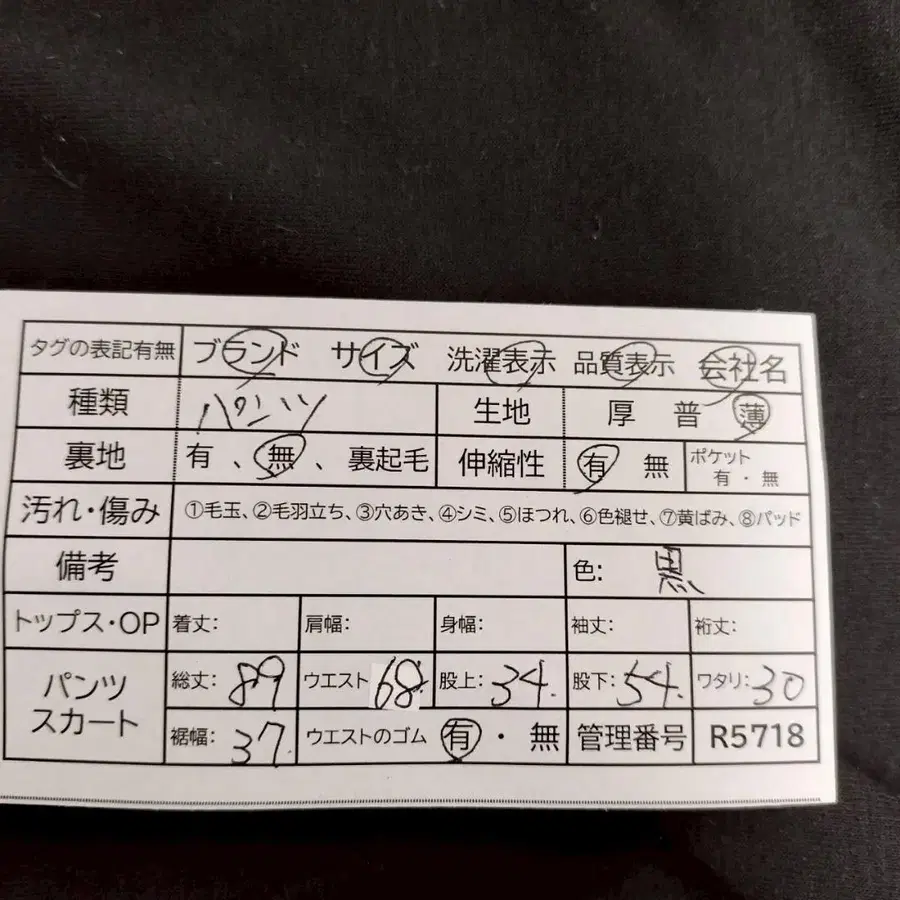 タグの表記有無 ブランド サイズ 洗濯表示 品質表示 会社名
種類 パンツ 生地 厚 普 薄
裏地 有 、無 、裏起毛 伸縮性 有 無 ポケット 有・無
汚れ・傷み ①毛玉、②毛羽立ち、③穴あき、④シミ、⑤ほつれ、⑥色褪せ、⑦黄ばみ、⑧パッド
備考 色: 黒
トップス・OP 着丈: 肩幅: 身幅: 袖丈: 裄丈:
パンツ スカート 総丈: 89 ウエスト 68. 股上: 34. 股下: 54. ワタリ: 30
裾幅: 37. ウエストのゴム 有・無 管理番号 R5718